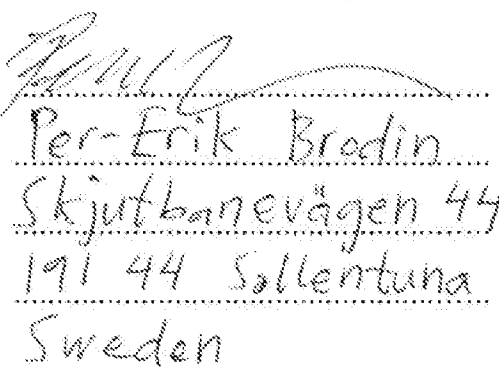 Per-Erik Brodin
Skjutbanevägen 44
191 44 Sollentuna
Sweden